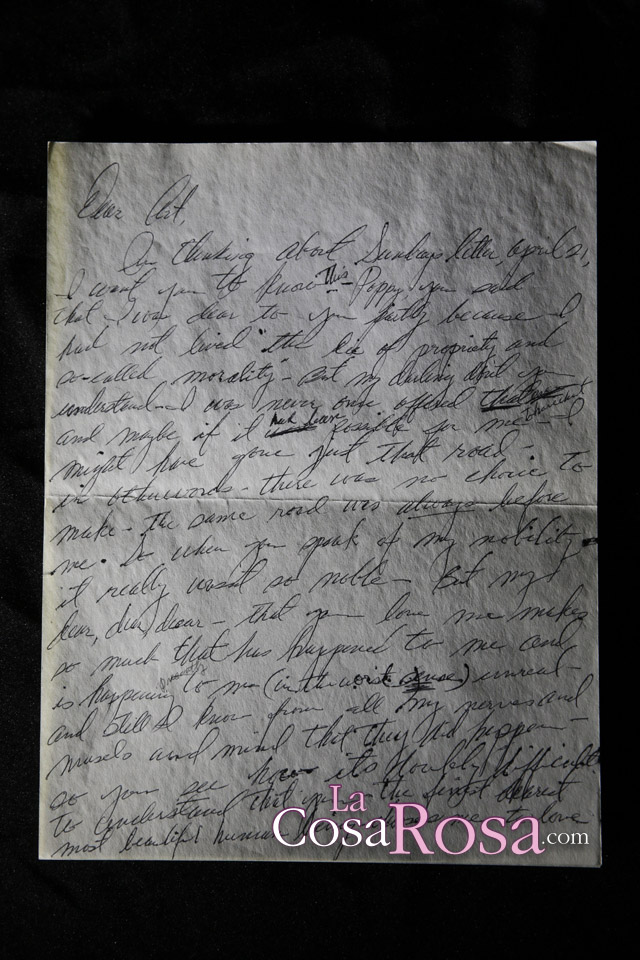 Dear Art,
Am thinking about Sundays letter, april 21,
I want you to know this Poppy you said
that I was dear to you partly because I
had not lived "the lie of propriety and
so-called morality" – But my darling did you
understand – I was never once offered that choice
and maybe if it had been possible for me – I
might have gone just that road –
in otherwords – there was no choice to
make – the same road was always before
me. So when you speak of my nobility
it really wasnt so noble – But my
dear, dear, dear – that you love me makes
so much that has happened to me and
is happening presently to me (in the worst sense) unreal –
and still I know from all my nerves and
musels and mind that they did happen –
so you see how it's doubly difficult
to understand that you – the finest dearest
most beautiful human being chose me to love
La
CosaRosa.com